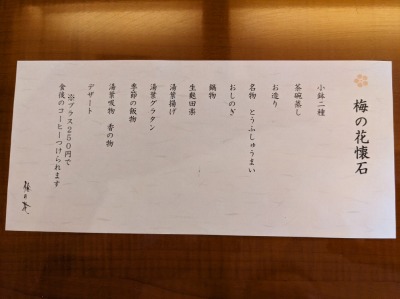 梅の花懐石
小鉢二種
茶碗蒸し
お造り
名物 とうふしゅうまい
おしのぎ
鍋物
生麩田楽
湯葉揚げ
湯葉グラタン
季節の飯物
湯葉吸物 香の物
デザート
※プラス250円で
食後のコーヒーつけられます
梅の花